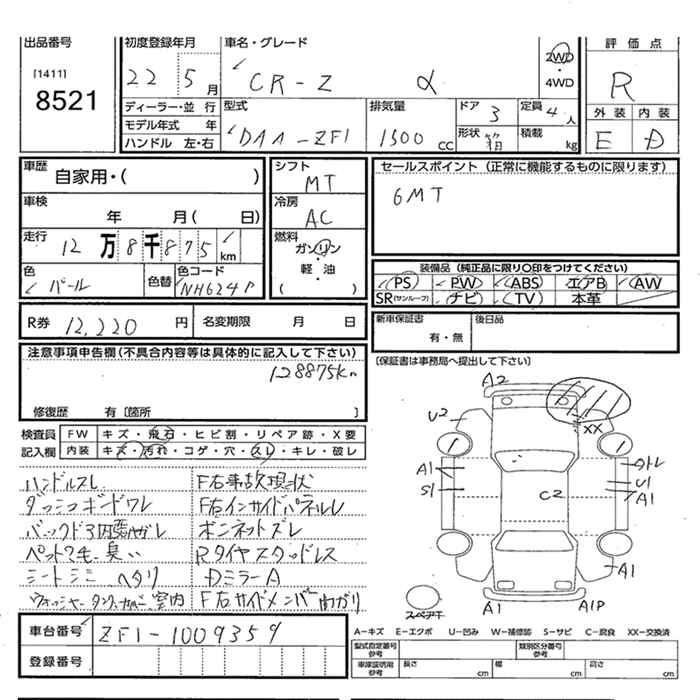 出品番号
[1411]
8521
初度登録年月
22 5 月
車名・グレード
CR-Z α
2WD
・
4WD
評価点
R
外装 内装
E D
ディーラー・並 行
モデル年式 年
ハンドル 左・右
型式
DAA-ZF1
排気量
1500 CC
ドア 3
形状
定員 4 人
積載 kg
車歴
自家用・( )
車検
年 月( 日)
走行
12万8千875 km
色
パール
色替
色コード
NH624P
シフト
MT
冷房
AC
燃料
ガソリン
・
軽・油
( )
セールスポイント (正常に機能するものに限ります)
6MT
装備品 (純正品に限り〇印をつけてください)
PS PW ABS エアB AW
SR(サンルーフ) ナビ TV 本革
R券 12,220 円
名変期限 月 日
新車保証書
有・無
後日品
(保証書は事務局へ提出して下さい)
注意事項申告欄(不具合内容等は具体的に記入して下さい)
128875km
修復歴 有 [箇所 ]
検査員
記入欄
FW キズ・飛石・ヒビ割・リペア跡・X要
内装 キズ・汚れ・コゲ・穴・スレ・キレ・破レ
ハンドルスレ
F右事故現状
ダッシュボードワレ
F右インサイドパネルレ
バックドア内張ハガレ
ボンネットズレ
ペット毛、臭い
RタイヤスタッドレS
シートシミ ヘタリ
DミラーA
ウォッシャータンクカバー室内
F右サイドメンバー曲ガリ
A2
U2
XX
A1
S1
C2
U1
A1
A1
A1
A1P
スペアT
車台番号
ZF1-1009359
登録番号
A-キズ E-エクボ U-凹み W-補修跡 S-サビ C-腐食 XX-交換済
型式指定番号
参考
類別区分番号
参考
車庫証明用
参考
長さ cm
幅 cm
高さ cm